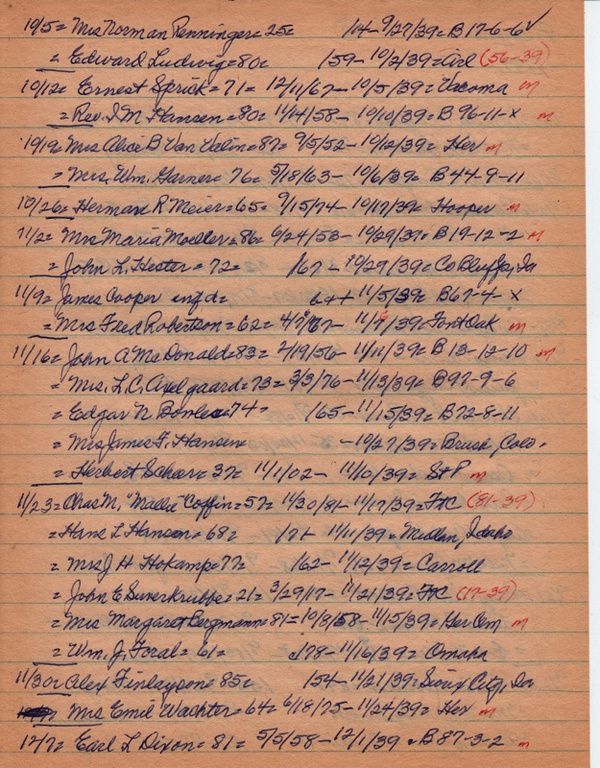 10/5= Mrs Norman Renninger= 25= 1/4- 9/27/39= B 17-6-6 ✓
= Edward Ludwig= 80= 1/59- 10/2/39= (56-39)
10/12= Ernest Sprick= 71= 12/11/67- 10/5/39= Tacoma m
= Rev. I M Hansen= 80= 11/14/58- 10/10/39= B 96-11-x m
10/19= Mrs Alice B Van Valin= 87= 9/5/52- 10/12/39= Her m
= Mrs. Wm. Garner= 76= 5/18/63- 10/6/39= B 44-9-11
10/26= Herman R Meier= 65= 9/15/74- 10/17/39= Hooper m
11/2= Mrs Maria Moeller= 86= 6/24/53- 10/29/39= B 19-12-2 m
= John L. Hester= 72= /67- 10/29/39= Co Bluffs, Ia
11/9= James Cooper 64+ 11/5/39= B67-4-x
= Mrs Fred Robertson= 62= 4/7/77- 11/9/39= Font Oak m
11/16= John A McDonald= 83= 2/19/56- 11/11/39= B 13-12-10 m
= Mrs. L.C. Axelgaard= 73= 3/3/76- 11/13/39= B97-9-6
= Edgar N Bowles= 74= /65- 11/15/39= B72-8-11
= Mrs James F. Hansen -10/27/39= Brush, Colo.
= Herbert Scheer= 37= 11/1/02- 11/10/39= St P m
11/23= Chas M. "Mallie" Coffin= 57= 11/30/81- 11/17/39= FtC (81-39)
= Hans L Hansen= 68= /71+ 11/11/39= Idaho
= Mrs J H Hokamp= 77= /62- 11/12/39= Carroll
= John E Suverkrubbe= 21= 3/29/17- 11/21/39= FtC (17-39)
= Mrs Margaret Bergmann= 81= 10/8/58- 11/15/39= Her Cm m
= Wm. J. Foral= 61= /78- 11/16/39= Omaha
11/30= Alex Finlayson= 85= 1/54- 11/21/39= Sioux City, Ia
Mrs Emil Wachter= 64= 6/18/75- 11/24/39= Her m
12/7= Earl L Dixon= 81= 5/5/58- 12/1/39= B 87-3-2 m